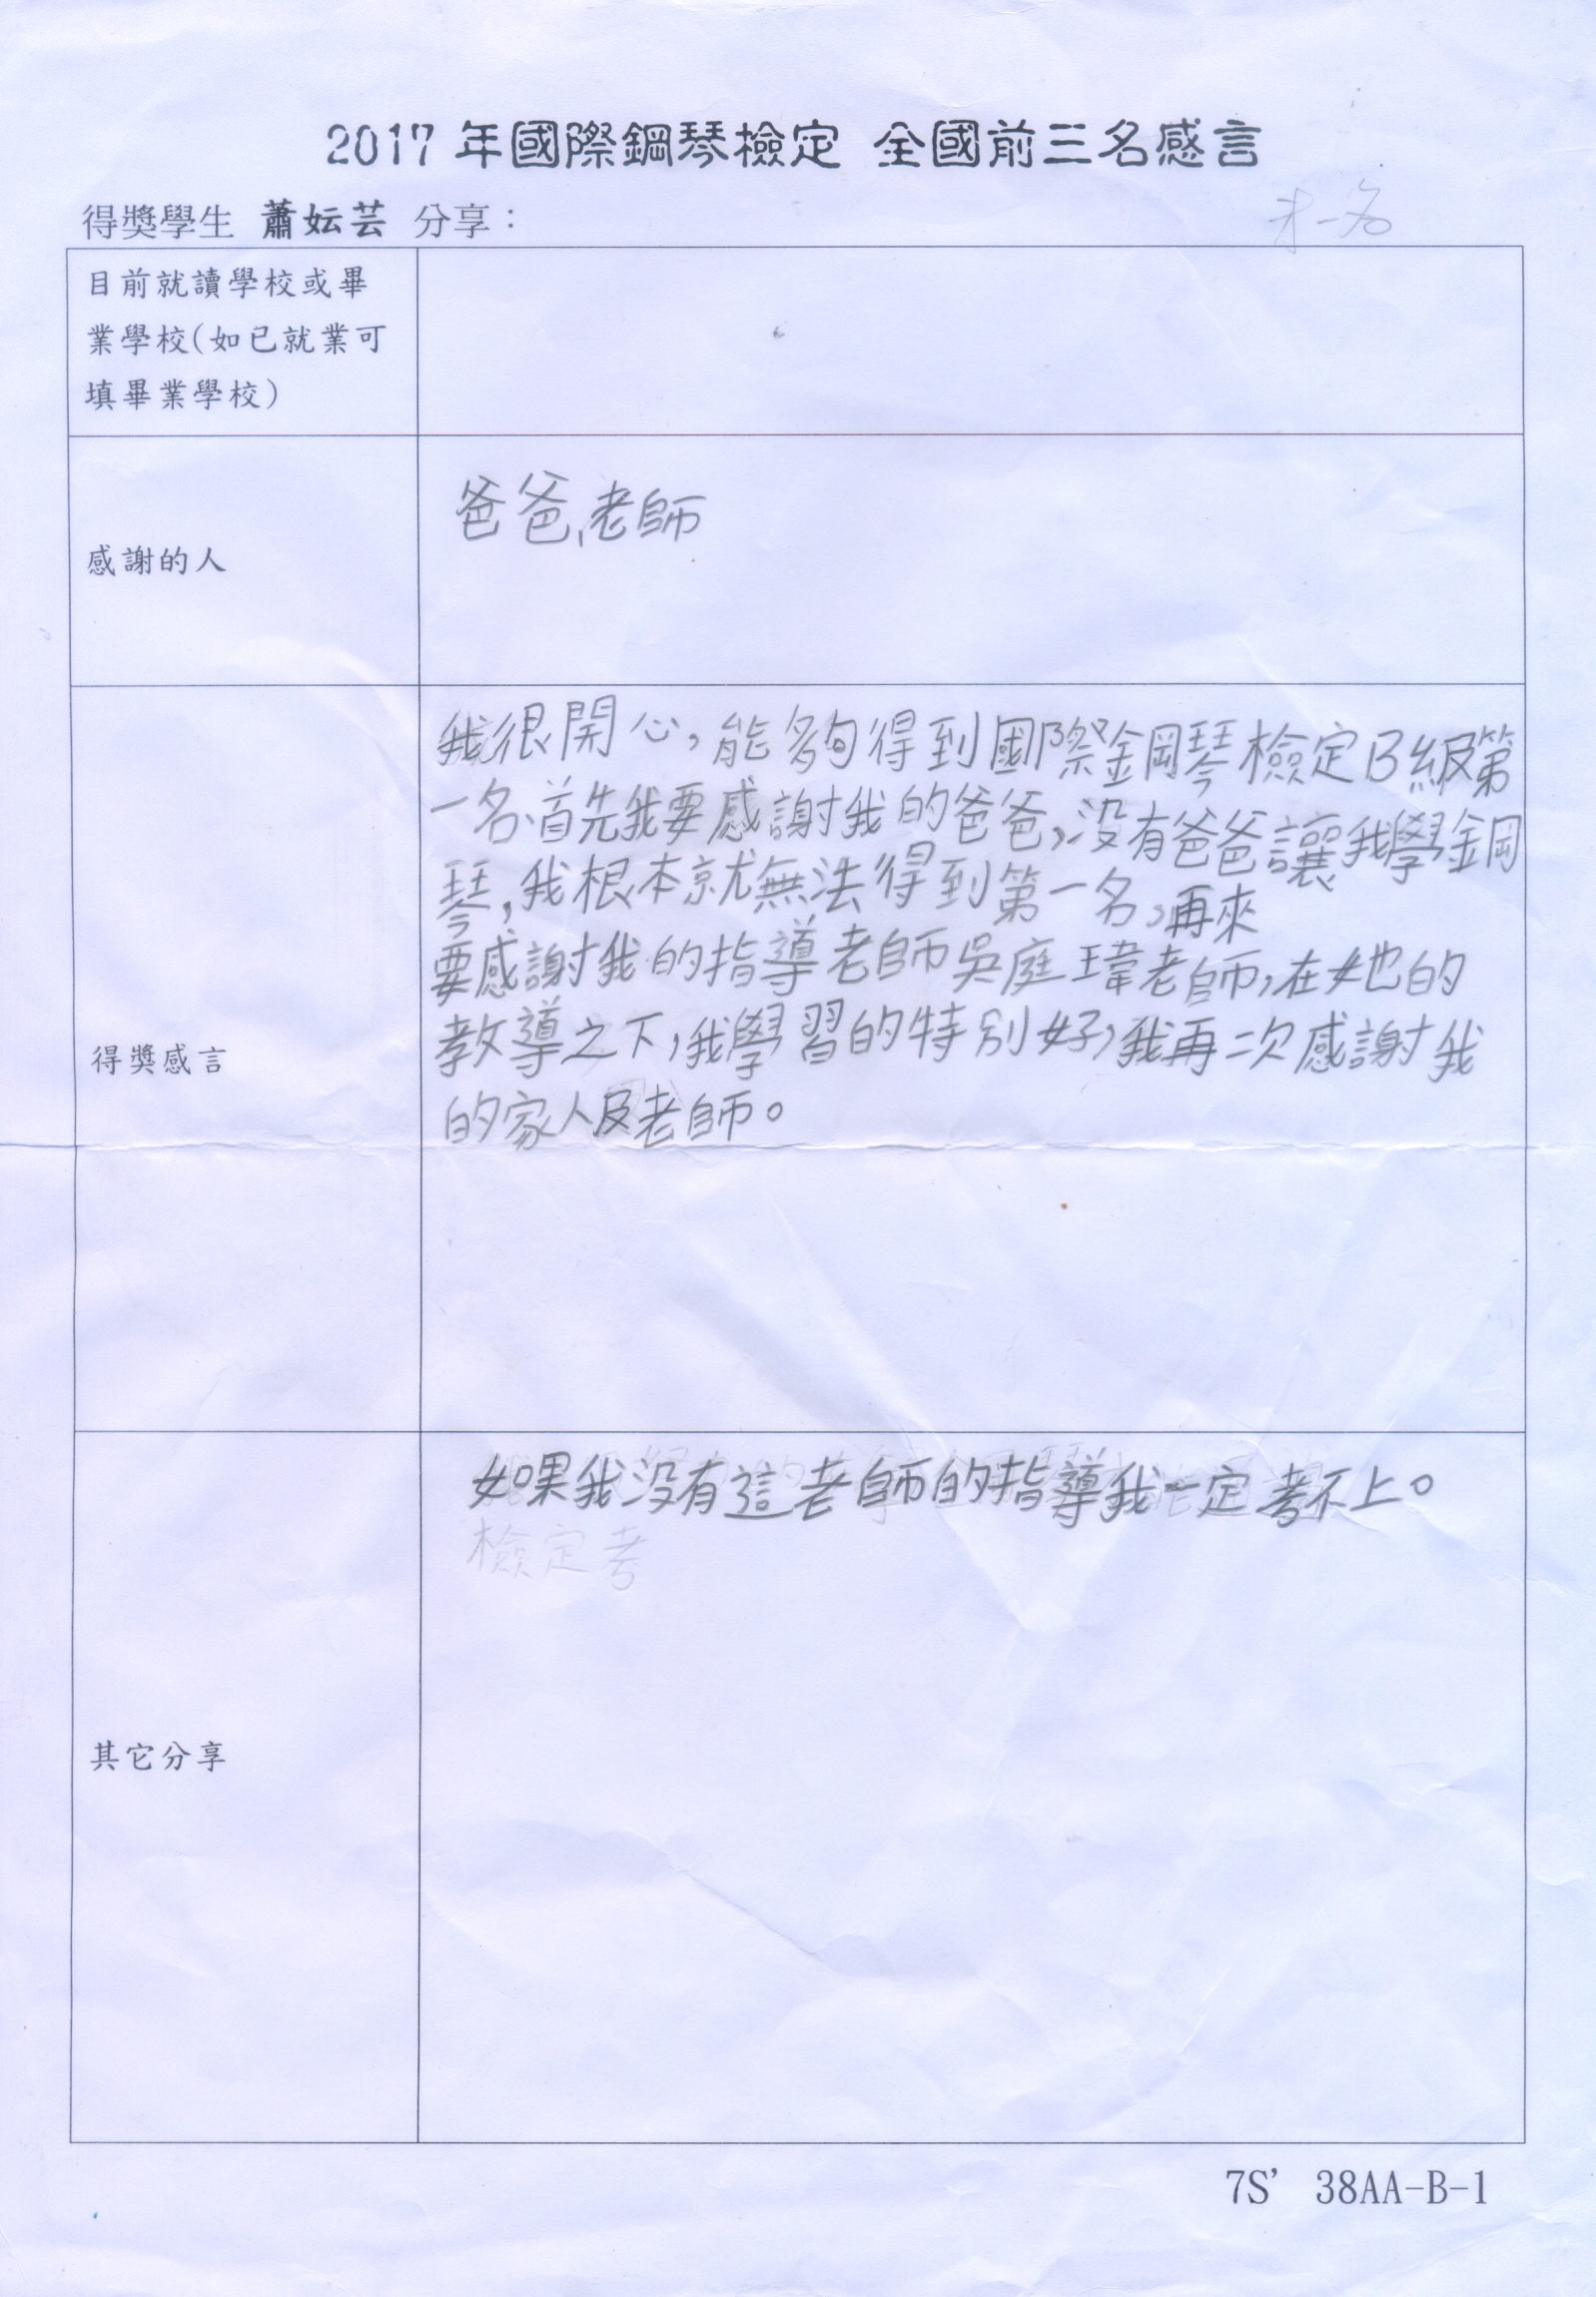 2017 年國際鋼琴檢定 全國前三名感言
得獎學生 蕭妘芸 分享：
才一名
目前就讀學校或畢
業學校(如已就業可
填畢業學校)
感謝的人
爸爸、老師
得獎感言
我很開心，能夠得到國際鋼琴檢定B級第
一名、首先我要感謝我的爸爸，沒有爸爸讓我學鋼
琴，我根本就無法得到第一名，再來
要感謝我的指導老師吳庭瑋老師，在她的
教導之下，我學習的特別好，我再二次感謝我
的家人及老師。
其它分享
如果我沒有這老師的指導我一定考不上。
檢定考
7S' 38AA-B-1